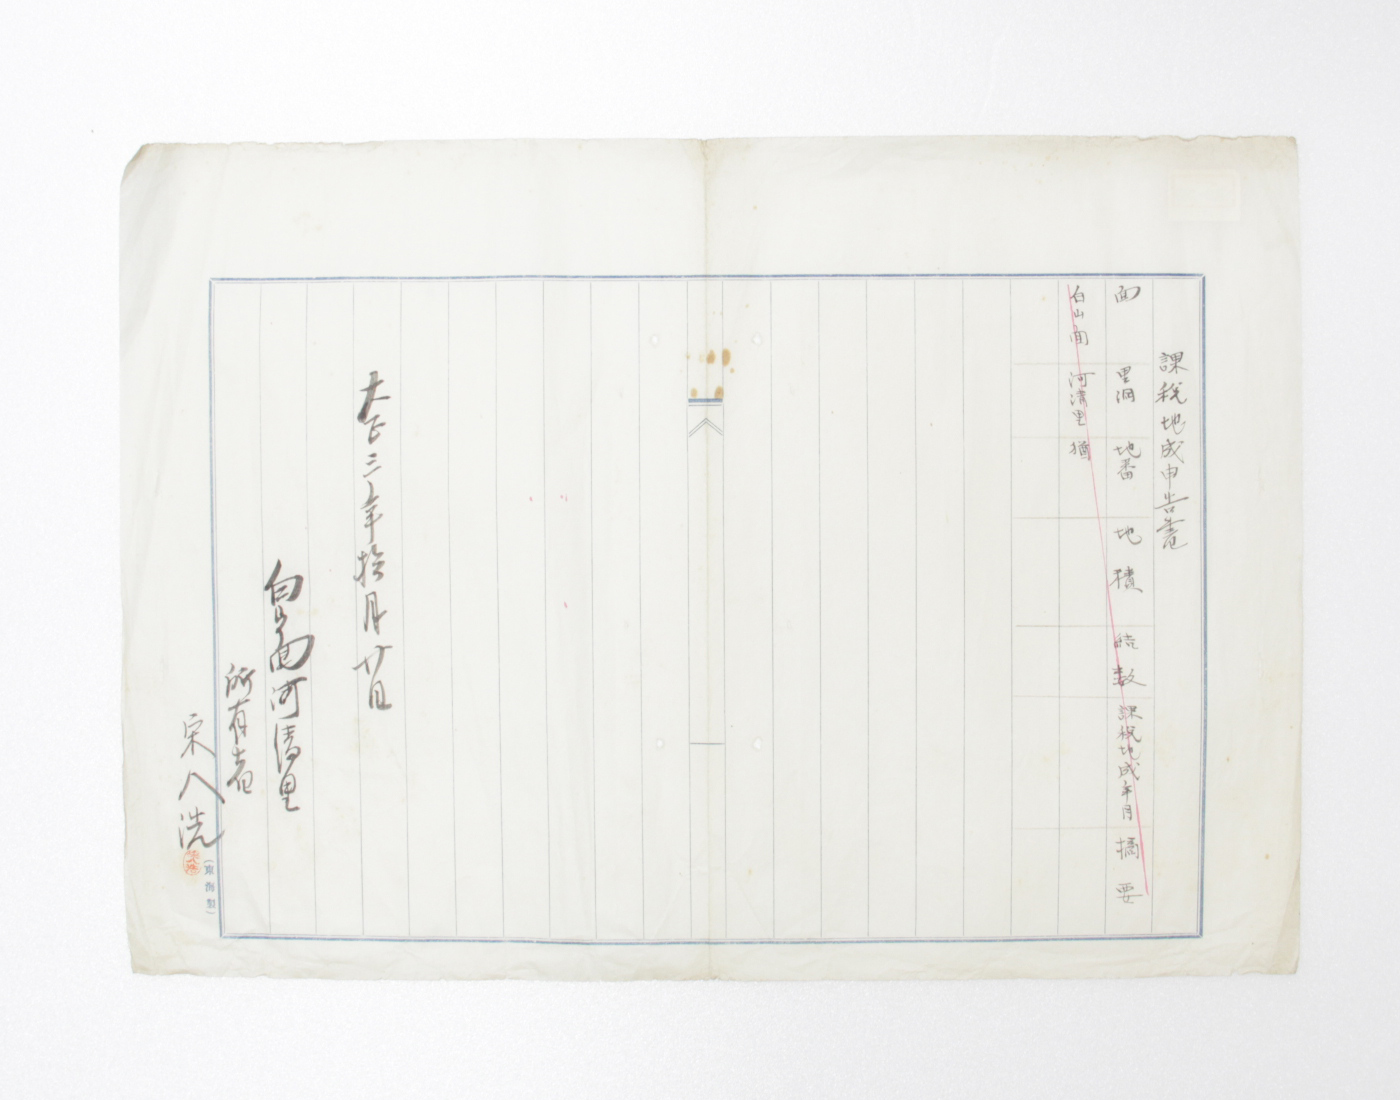 課稅地成申告書
面 里洞 地番 地積 結數 課稅地成年月 摘要
白山面 河淸里 猶
大正三年拾月廿日
白山面河淸里
所有者
宋八洗
(東海製)